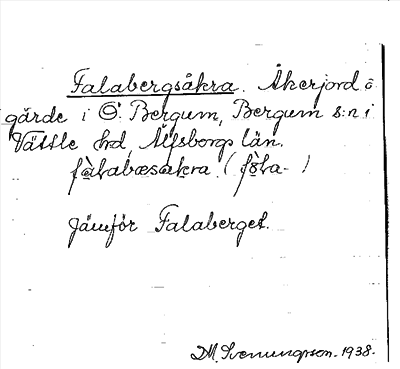 Falabergsåkra. Åkerjord å
gärde i Ö. Bergum, Bergum s:n i
Vättle hd, Älfsborgs län.
fàlabæsakra. (fòla- )
Jämför Falaberget.
D.M. Svenungsson. 1938.